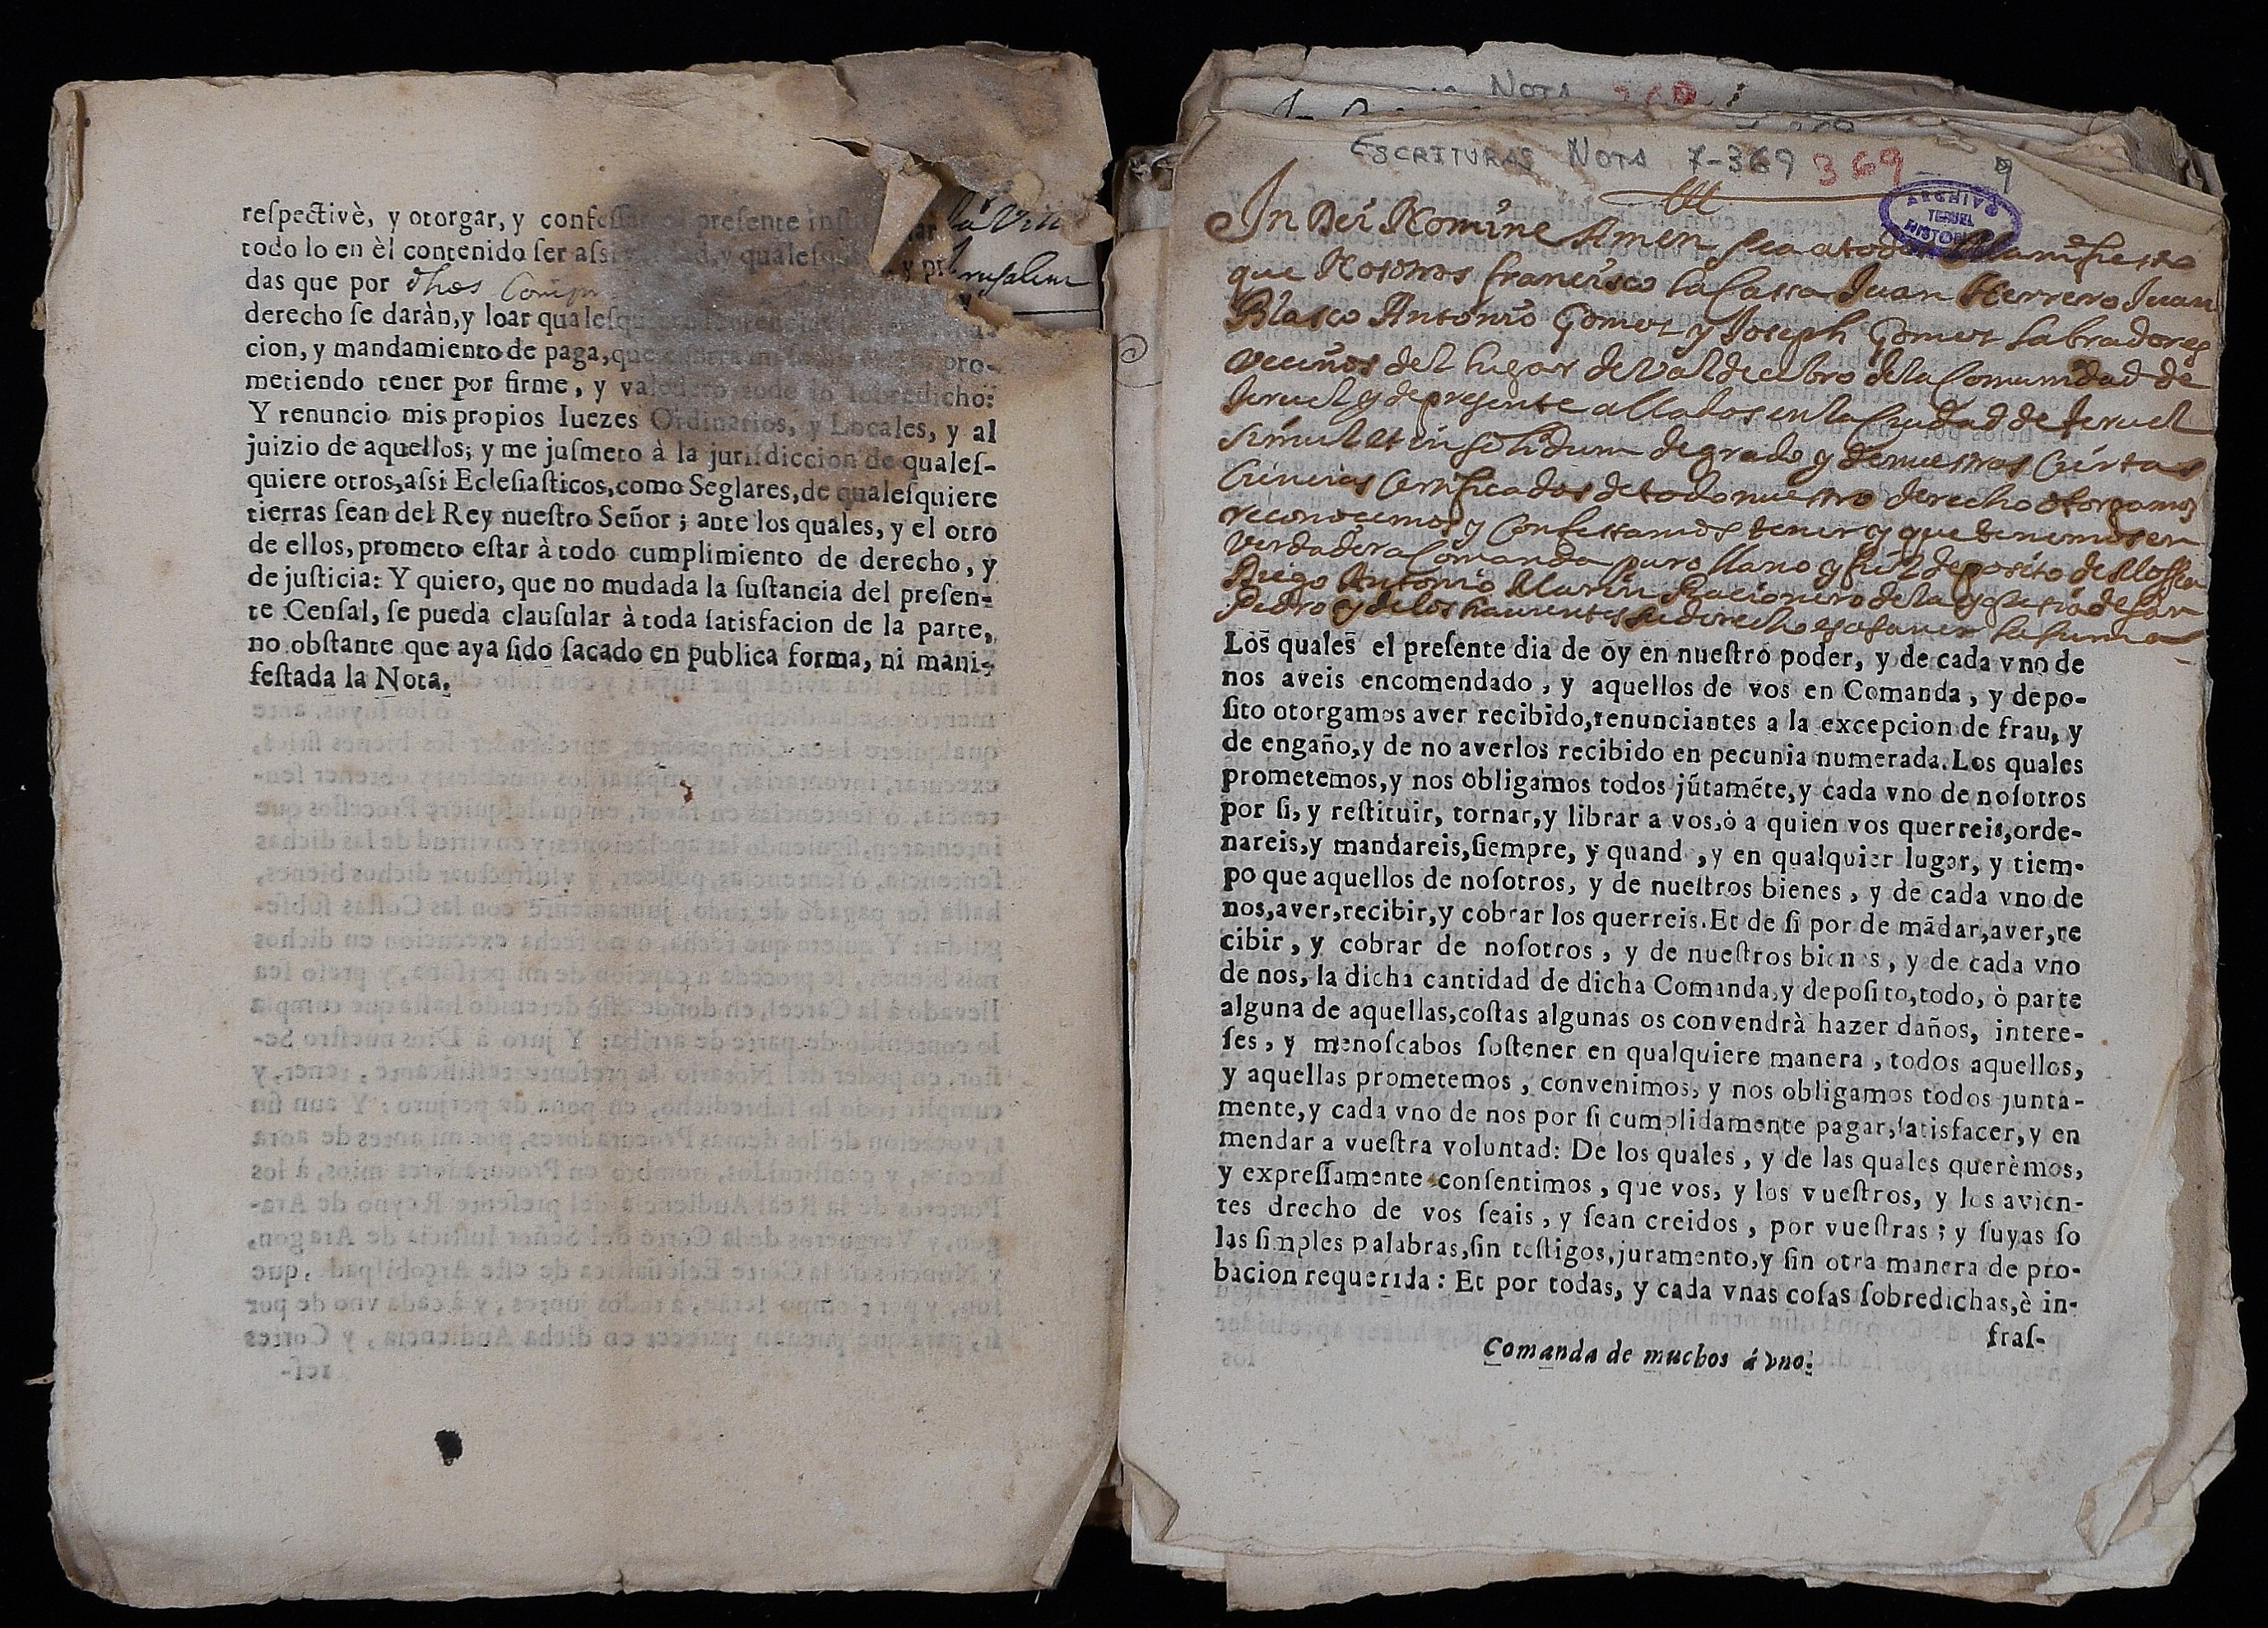 respectivè, y otorgar, y confessar presente
todo lo en èl contenido ser assi y quales
das que por dhos
derecho se daràn, y loar qualesqu
cion, y mandamiento de paga, que pro-
metiendo tener por firme, y valedero todo lo sobredicho:
Y renuncio mis propios Iuezes Ordinarios, y Locales, y al
juizio de aquellos; y me jusmeto à la jurisdiccion de quales-
quiere otros, assi Eclesiasticos, como Seglares, de qualesquiere
tierras sean del Rey nuestro Señor; ante los quales, y el otro
de ellos, prometo estar à todo cumplimiento de derecho, y
de justicia: Y quiero, que no mudada la sustancia del presen-
te Censal, se pueda clausular à toda satisfacion de la parte,
no obstante que aya sido sacado en publica forma, ni mani-
festada la Nota.
ESCRITURAS NOTA 7-369 369 9
ARCHIVO
TERUEL
HISTORICO
In Dei Nomine Amen sea a todos Manifiesto
que Nosotros francisco la Cassa Juan Herrero Juan
Blasco Antonio Gomez y Joseph Gomez labradores
vecinos del lugar de Valdecebro de la Comunidad de
teruel y de presente allados en la Ciudad de teruel
simul et in solidum de grado y de nuestras Ciertas
Ciencias Certificados de todo nuestro derecho otorgamos
reconocemos y Confessamos tener y que tenemos en
Verdadera Comanda puro llano y fiel deposito de Mossen
Diego Antonio Marin Racionero de la yglesia de San
Pedro y de los havientes su derecho es a saver la suma
Los quales el presente dia de oy en nuestro poder, y de cada vno de
nos aveis encomendado, y aquellos de vos en Comanda, y depo-
sito otorgamos aver recibido, renunciantes a la excepcion de frau, y
de engaño, y de no averlos recibido en pecunia numerada. Los quales
prometemos, y nos obligamos todos jũtamẽte, y cada vno de nosotros
por si, y restituir, tornar, y librar a vos, ò a quien vos querreis, orde-
nareis, y mandareis, siempre, y quand , y en qualquier lugar, y tiem-
po que aquellos de nosotros, y de nuestros bienes, y de cada vno de
nos, aver, recibir, y cobrar los querreis. Et de si por de mãdar, aver, re
cibir, y cobrar de nosotros, y de nuestros bienes, y de cada vno
de nos, la dicha cantidad de dicha Comanda, y deposito, todo, ò parte
alguna de aquellas, costas algunas os convendrà hazer daños, intere-
ses, y menoscabos sostener en qualquiere manera, todos aquellos,
y aquellas prometemos, convenimos, y nos obligamos todos junta-
mente, y cada vno de nos por si cumplidamente pagar, satisfacer, y en
mendar a vuestra voluntad: De los quales, y de las quales querèmos,
y expressamente consentimos, que vos, y los vuestros, y los avien-
tes drecho de vos seais, y sean creidos, por vuestras; y suyas so
las simples palabras, sin testigos, juramento, y sin otra manera de pro-
bacion requerida: Et por todas, y cada vnas cosas sobredichas, è in-
fras-
Comanda de muchos á vno.